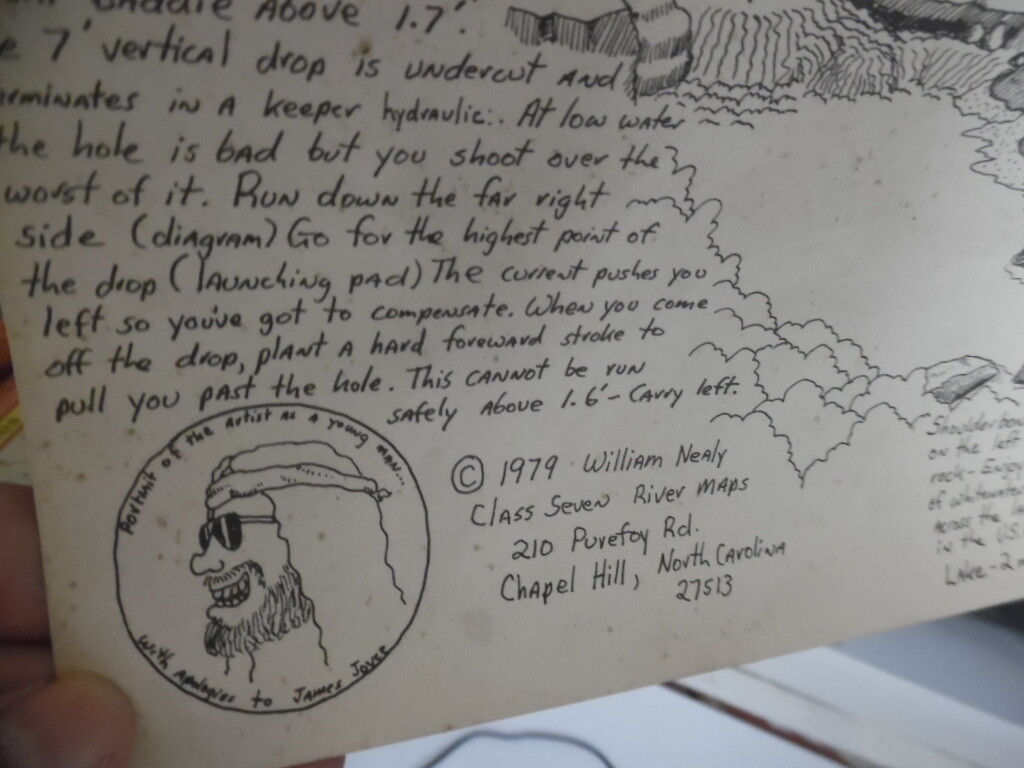 Paddle Above 1.7'.
7' vertical drop is undercut and
in a keeper hydraulic. At low water
the hole is bad but you shoot over the
worst of it. Run down the far right
side (diagram) Go for the highest point of
the drop (launching pad) The current pushes you
left so you've got to compensate. When you come
off the drop, plant a hard foreward stroke to
pull you past the hole. This cannot be run
safely above 1.6' - Carry left.
Portrait of the artist as a young man...
With apologies to James Joyce
© 1979 William Nealy
Class Seven River Maps
210 Purefoy Rd.
Chapel Hill, North Carolina
27513
on the left
rock - Enjoy
of whitewater
across the
in the U.S.
Lake - 2